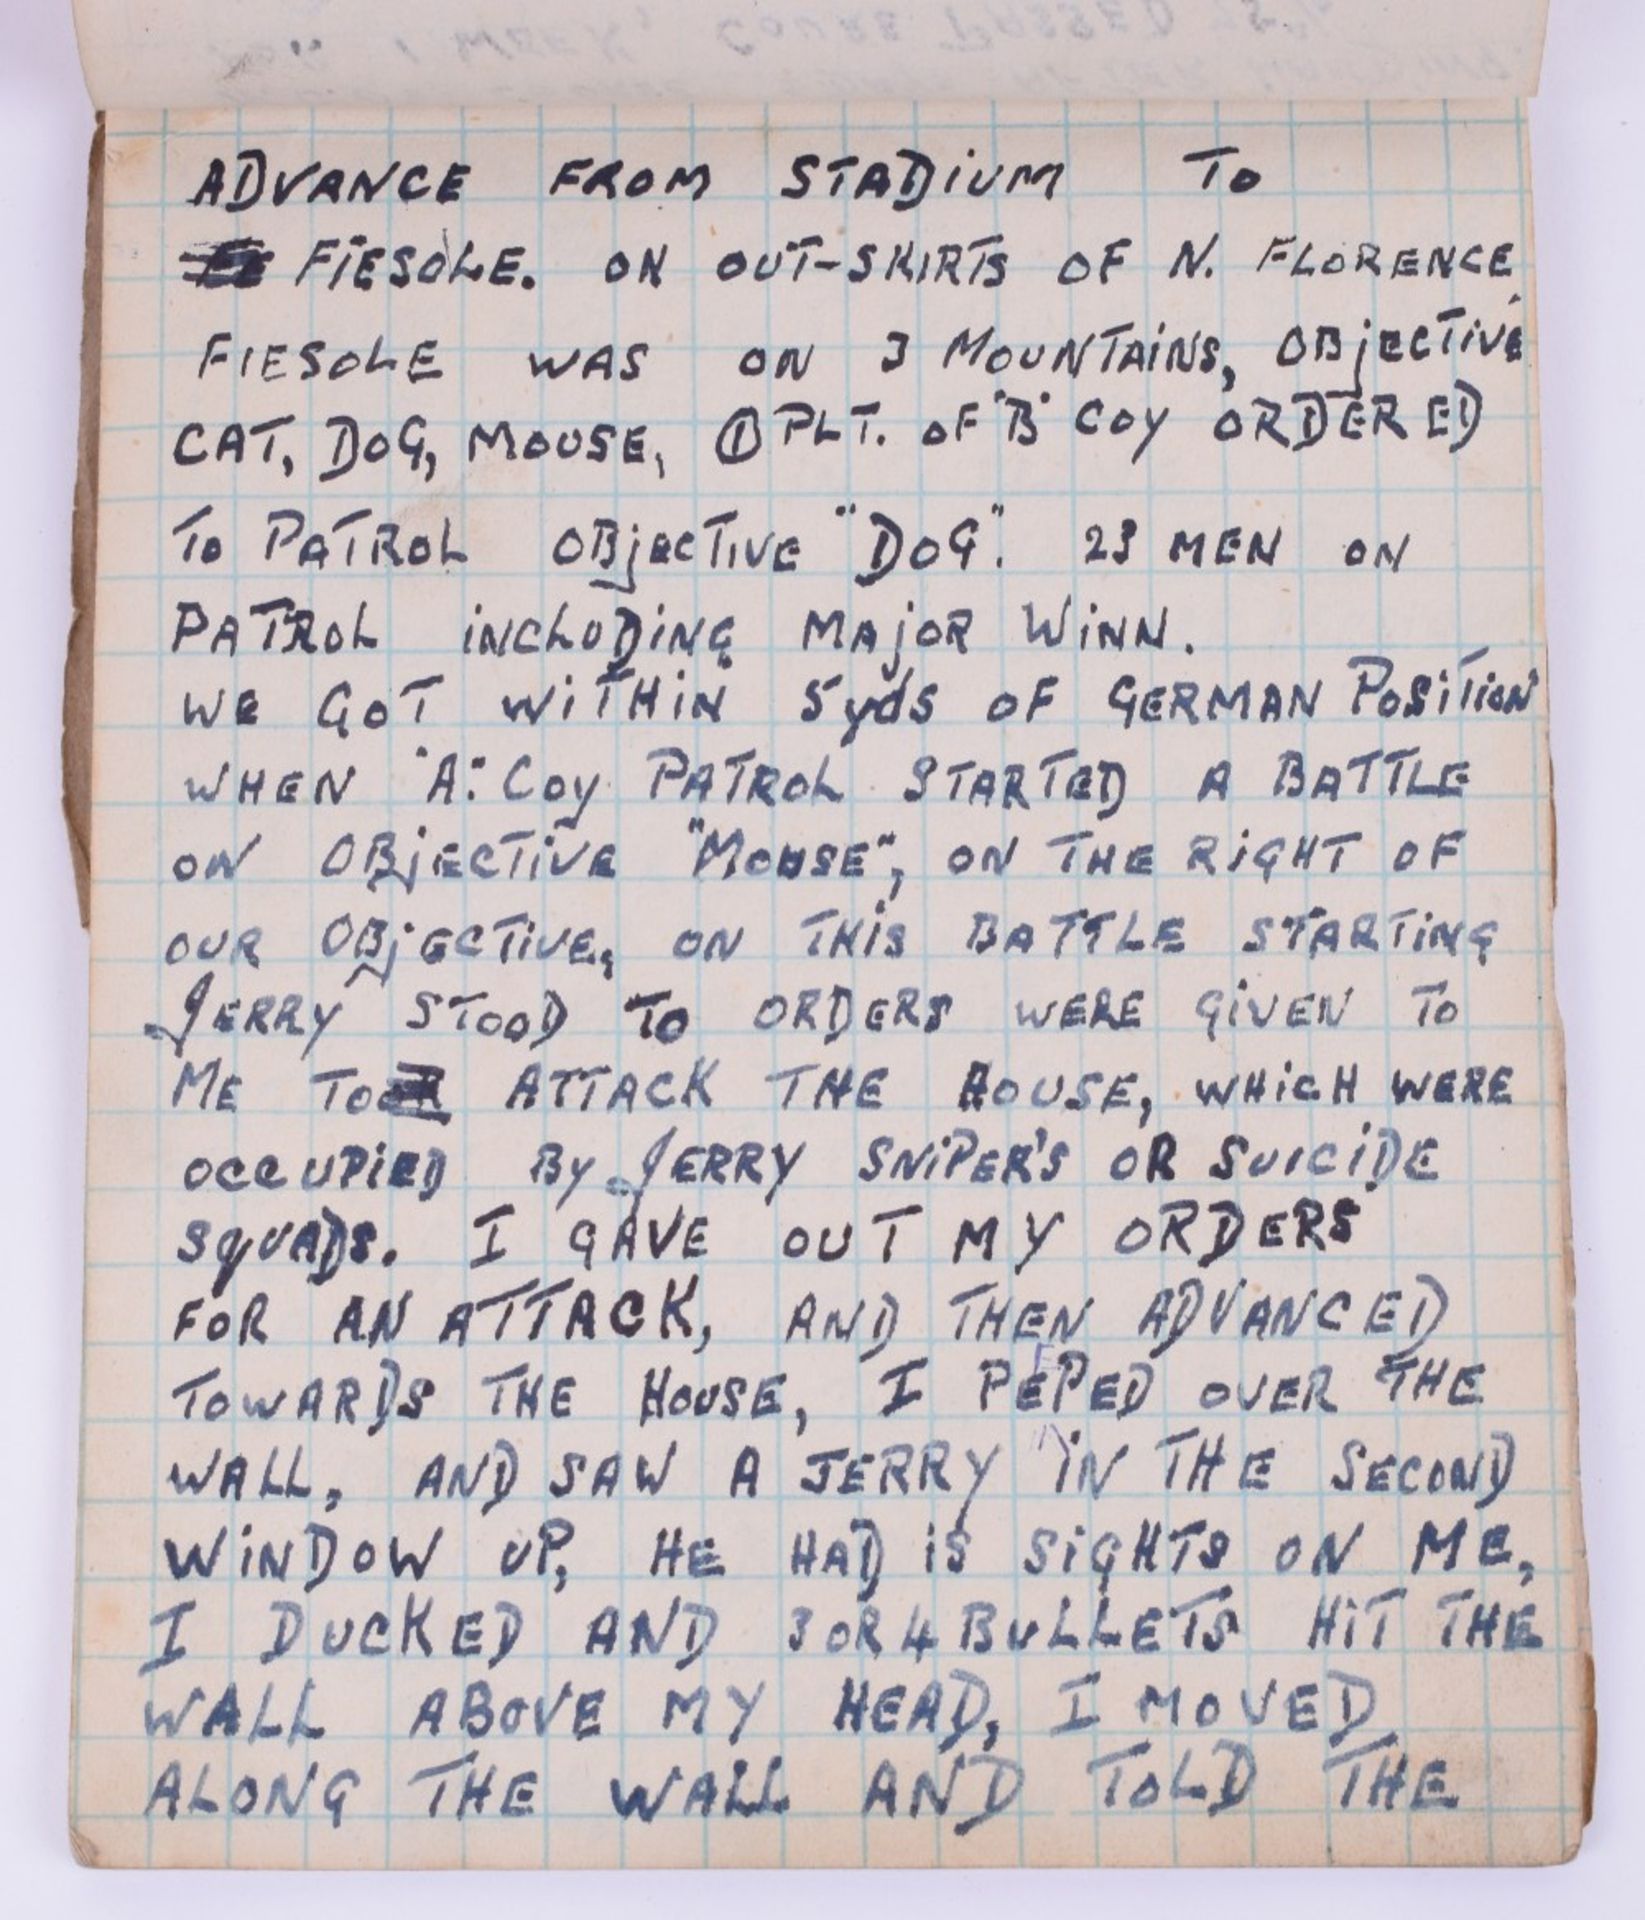 ADVANCE FROM STADIUM TO
FIESOLE. ON OUT-SKIRTS OF N. FLORENCE,
FIESOLE WAS ON 3 MOUNTAINS, OBJECTIVE
CAT, DOG, MOUSE, ① PLT. OF "B" COY ORDERED
TO PATROL OBJECTIVE "DOG". 23 MEN ON
PATROL INCLUDING MAJOR WINN.
WE GOT WITHIN 5 yds OF GERMAN POSITION
WHEN "A". COY PATROL STARTED A BATTLE
ON OBJECTIVE "MOUSE", ON THE RIGHT OF
OUR OBJECTIVE, ON THIS BATTLE STARTING
JERRY STOOD TO ORDERS WERE GIVEN TO
ME TO ATTACK THE HOUSE, WHICH WERE
OCCUPIED BY JERRY SNIPER'S OR SUICIDE
SQUADS. I GAVE OUT MY ORDERS
FOR AN ATTACK, AND THEN ADVANCED
TOWARDS THE HOUSE, I PEEPED OVER THE
WALL, AND SAW A JERRY IN THE SECOND
WINDOW UP, HE HAD IS SIGHTS ON ME,
I DUCKED AND 3 OR 4 BULLETS HIT THE
WALL ABOVE MY HEAD, I MOVED
ALONG THE WALL AND TOLD THE